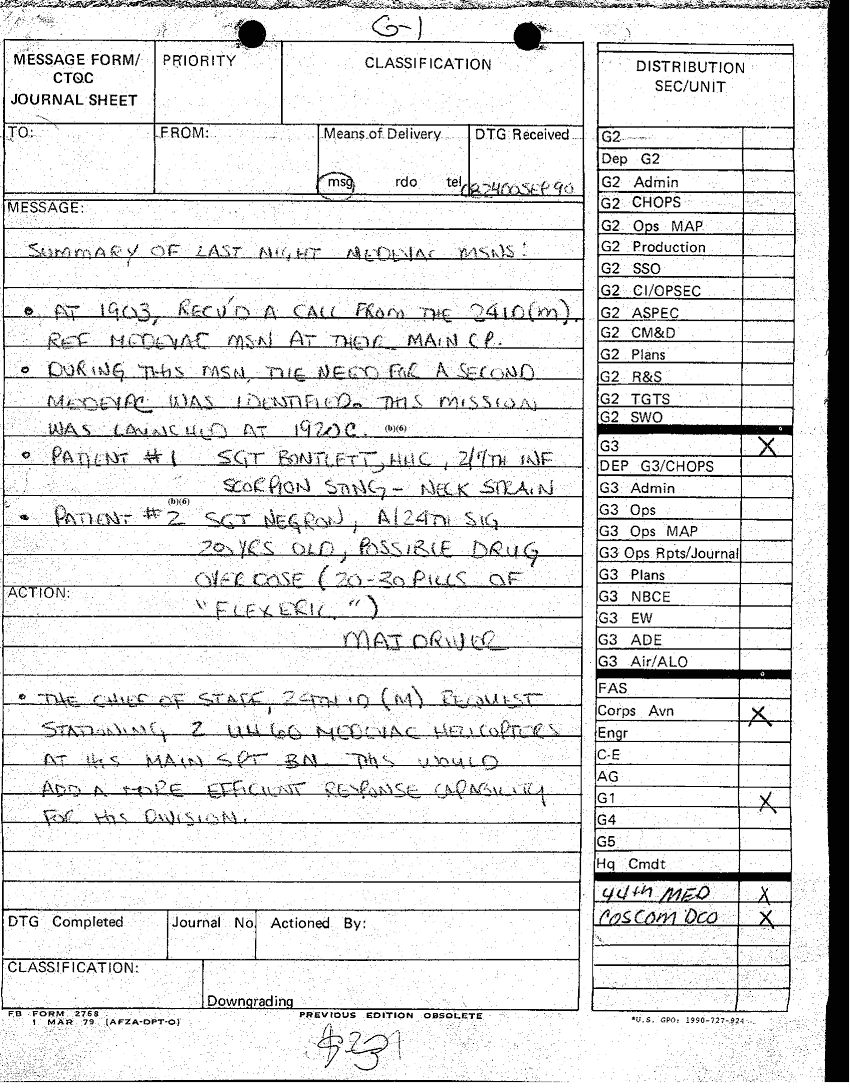 G-1
MESSAGE FORM/
CTOC
JOURNAL SHEET
PRIORITY
CLASSIFICATION
TO:
FROM:
Means of Delivery
DTG Received
msg rdo tel
082400SEP90
MESSAGE:
SUMMARY OF LAST NIGHT MEDEVAC MSNS:
• AT 1903, RECV'D A CALL FROM THE 24ID(M).
REF MEDEVAC MSN AT THEIR MAIN CP.
• DURING THIS MSN, THE NEED FOR A SECOND
MEDEVAC WAS IDENTIFIED. THIS MISSION
WAS LAUNCHED AT 1920C.
(b)(6)
• PATIENT #1 SGT BONTLETT, HHC, 2/7TH INF
SCORPION STING - NECK STRAIN
(b)(6)
• PATIENT #2 SGT NEGRON, A/24TH SIG
20 YRS OLD, POSSIBLE DRUG
OVERDOSE (20-30 PILLS OF
"FLEXERIL")
ACTION:
MAJ DRIVER
• THE CHIEF OF STAFF, 24TH ID (M) REQUEST
STATIONING 2 UH60 MEDEVAC HELICOPTERS
AT HIS MAIN SPT BN. THIS WOULD
ADD A MORE EFFICIENT RESPONSE CAPABILITY
FOR HIS DIVISION.
DTG Completed
Journal No.
Actioned By:
CLASSIFICATION:
Downgrading
FB FORM 2768
1 MAR 79 (AFZA-DPT-O)
PREVIOUS EDITION OBSOLETE
DISTRIBUTION
SEC/UNIT
G2
Dep G2
G2 Admin
G2 CHOPS
G2 Ops MAP
G2 Production
G2 SSO
G2 CI/OPSEC
G2 ASPEC
G2 CM&D
G2 Plans
G2 R&S
G2 TGTS
G2 SWO
G3 X
DEP G3/CHOPS
G3 Admin
G3 Ops
G3 Ops MAP
G3 Ops Rpts/Journal
G3 Plans
G3 NBCE
G3 EW
G3 ADE
G3 Air/ALO
FAS
Corps Avn X
Engr
C-E
AG
G1 X
G4
G5
Hq Cmdt
44th MED X
COSCOM DCO X
*U.S. GPO: 1990-727-924